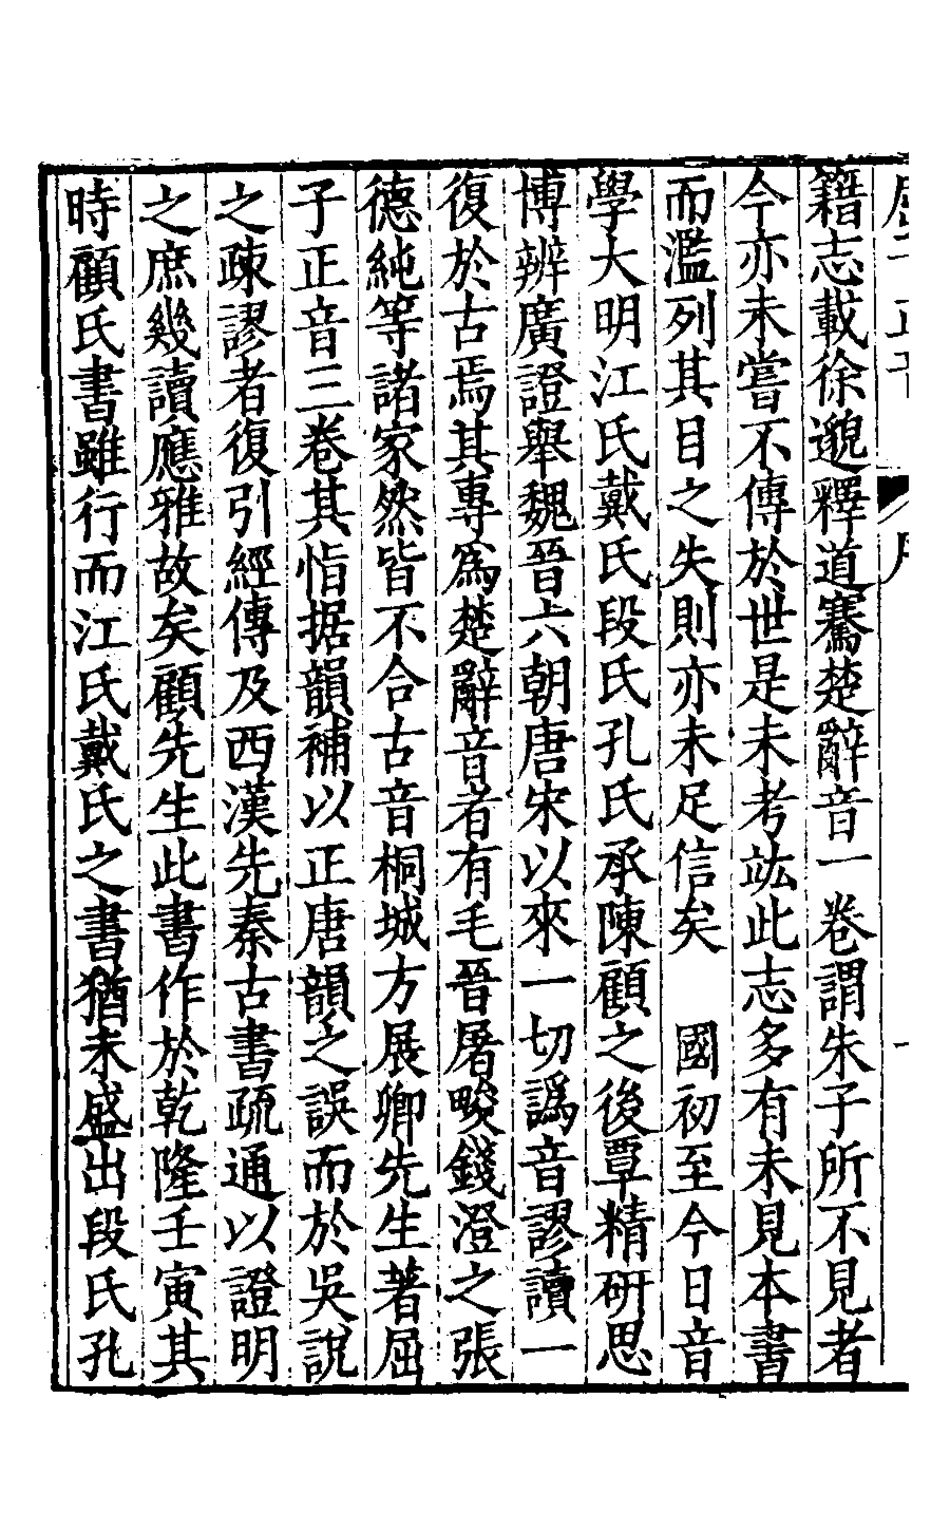 籍志載徐邈釋道騫楚辭音一卷謂朱子所不見者
今亦未嘗不傳於世是未考竑此志多有未見本書
而濫列其目之失則亦未足信矣　國初至今日音
學大明江氏戴氏段氏孔氏承陳顧之後覃精研思
博辨廣證舉魏晉六朝唐宋以來一切譌音謬讀一
復於古焉其專為楚辭音者有毛晉屠畯錢澄之張
德純等諸家然皆不合古音桐城方展卿先生著屈
子正音三卷其恉据韻補以正唐韻之誤而於吳說
之疎謬者復引經傳及西漢先秦古書疏通以證明
之庶幾讀應雅故矣顧先生此書作於乾隆壬寅其
時顧氏書雖行而江氏戴氏之書猶未盛出段氏孔